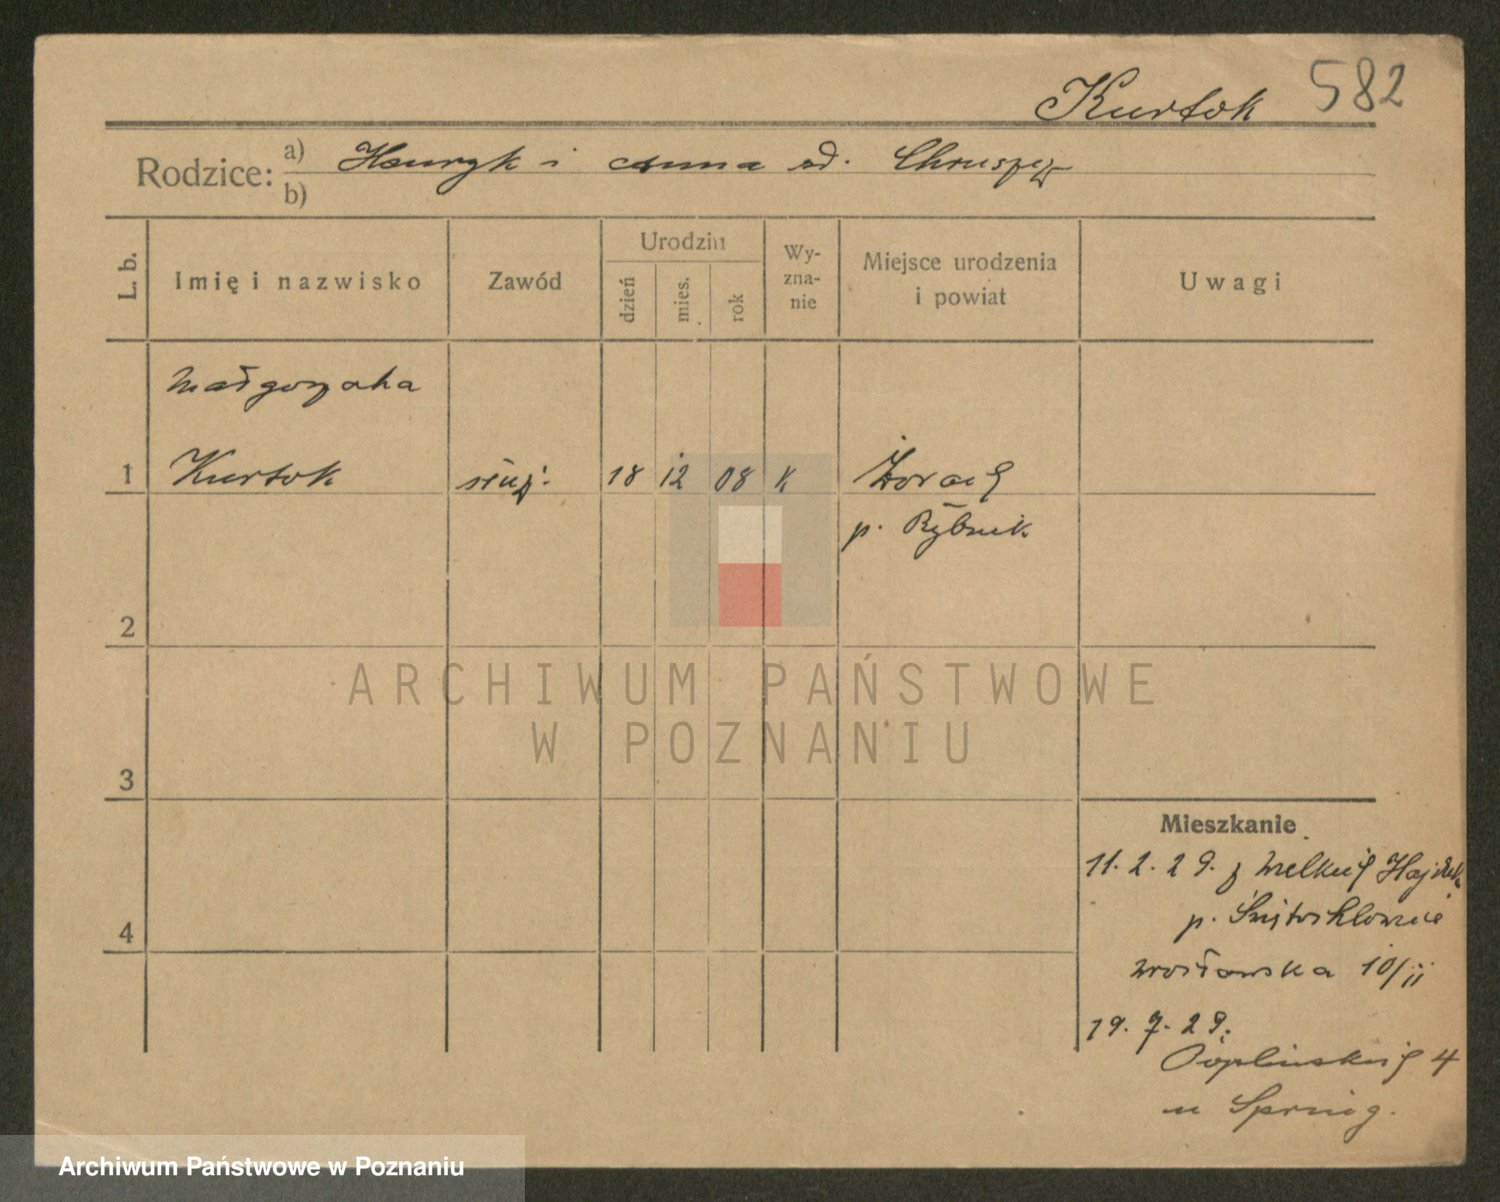 Kurtok 582
Rodzice: a) Henryk i Anna od.
b)
L. b. Imię i nazwisko Zawód Urodzin dzień mies. rok Wy-zna-nie Miejsce urodzenia i powiat Uwagi
Małgorzata
1 Kurtok służ. 18 12 08 K
p. Rybnik
2
ARCHIWUM PAŃSTWOWE
W POZNANIU
3
Mieszkanie
11. 2. 29. z Wielkich Hajduk
4 p. Świętochłowice
Wrocławska 10/II
19. 7. 29.
4
u
Archiwum Państwowe w Poznaniu